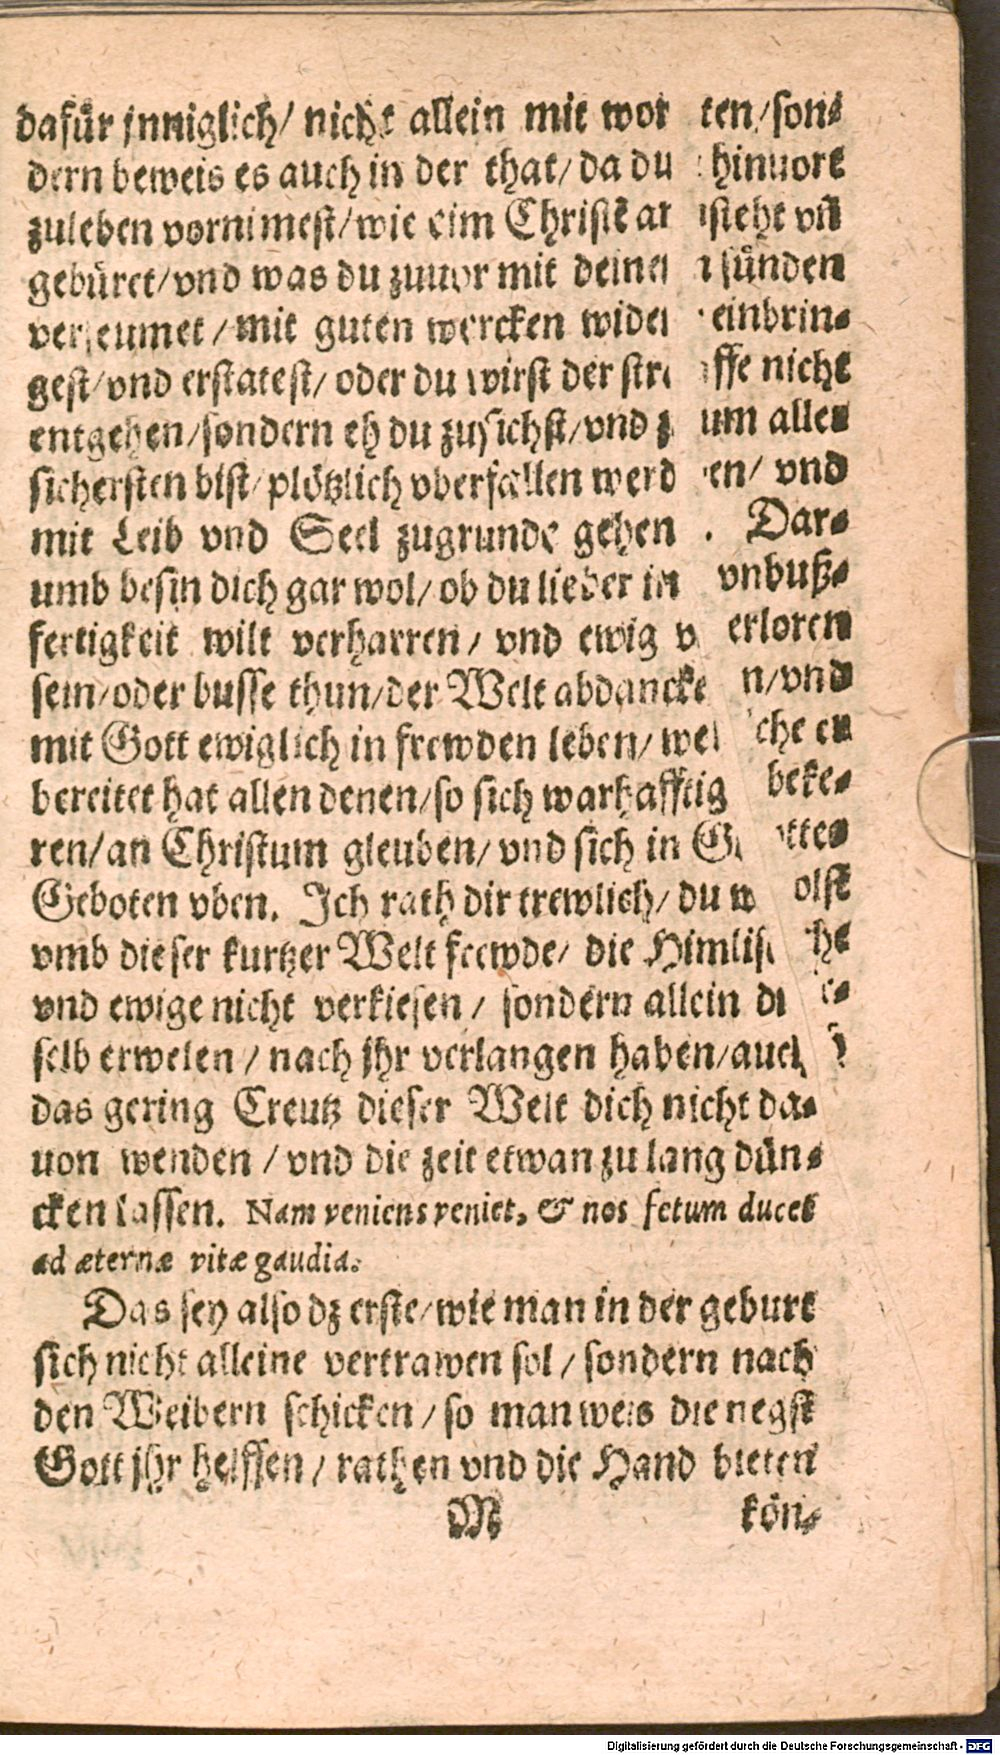 dafür jnniglich/ nicht allein mit worten/son-
dern beweis es auch in der that/ da du hinuort
zuleben vornimest/wie eim Christē ansteht vñ
gebüret/vnd was du zuuor mit deinen sünden
verseumet/mit guten wercken wider einbrin-
gest/vnd erstatest/ oder du wirst der straffe nicht
entgehen/sondern eh du zusichst/vnd zum aller
sichersten bist/plötzlich vberfallen werden/ vnd
mit Leib vnd Seel zugrunde gehen. Dar-
umb besin dich gar wol/ ob du lieber in vnbuß-
fertigkeit wilt verharren/ vnd ewig verloren
sein/oder busse thun/der Welt abdancken/vnd
mit Gott ewiglich in frewden leben/ welche er
bereitet hat allen denen/so sich warhafftig beke-
ren/an Christum gleuben/ vnd sich in Gottes
Geboten vben. Ich rath dir trewlich/ du wolst
vmb dieser kurtzer Welt frewde/ die Himlische
vnd ewige nicht verkiesen/ sondern allein die-
selb erwelen/ nach jhr verlangen haben/auch
das gering Creutz dieser Welt dich nicht da-
uon wenden/ vnd die zeit etwan zu lang dün-
cken lassen. Nam veniens veniet, & nos secum ducet
ad æternæ vitæ gaudia.
Das sey also dz erste/wie man in der geburt
sich nicht alleine vertrawen sol/ sondern nach
den Weibern schicken/ so man weis die negst
Gott jhr helffen/ rathen vnd die Hand bieten
M kön-
Digitalisierung gefördert durch die Deutsche Forschungsgemeinschaft - DFG